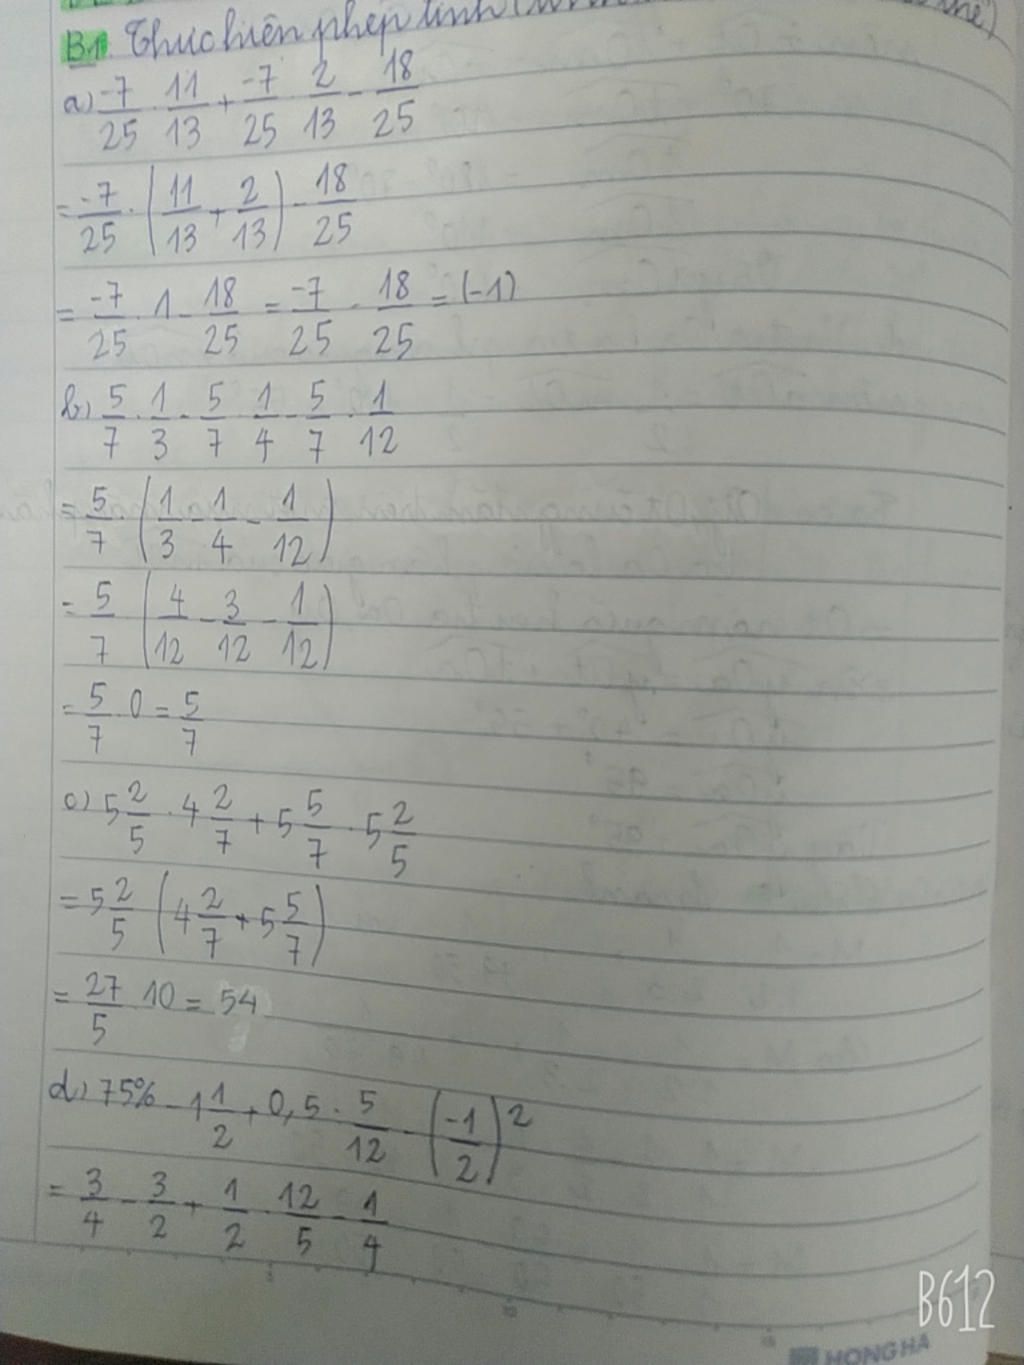 B1. Thực hiện phép tính (
a) -7/25 . 11/13 + -7/25 . 2/13 - 18/25
= -7/25 . (11/13 + 2/13) - 18/25
= -7/25 . 1 - 18/25 = -7/25 - 18/25 = (-1)
b) 5/7 . 1/3 - 5/7 . 1/4 - 5/7 . 1/12
= 5/7 . (1/3 - 1/4 - 1/12)
= 5/7 (4/12 - 3/12 - 1/12)
= 5/7 . 0 = 5/7
c) 5 2/5 . 4 2/7 + 5 5/7 . 5 2/5
= 5 2/5 (4 2/7 + 5 5/7)
= 27/5 . 10 = 54
d) 75% - 1 1/2 + 0,5 . 5/12 - (-1/2)^2
= 3/4 - 3/2 + 1/2 . 12/5 - 1/4
B612
HONG HA